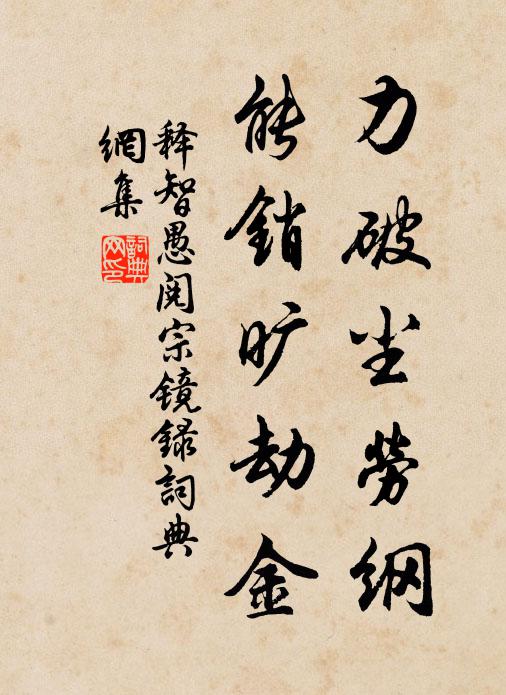 力破尘劳纲
能销旷劫金
释智愚阅宗镜录词典
网集
詞典
网印